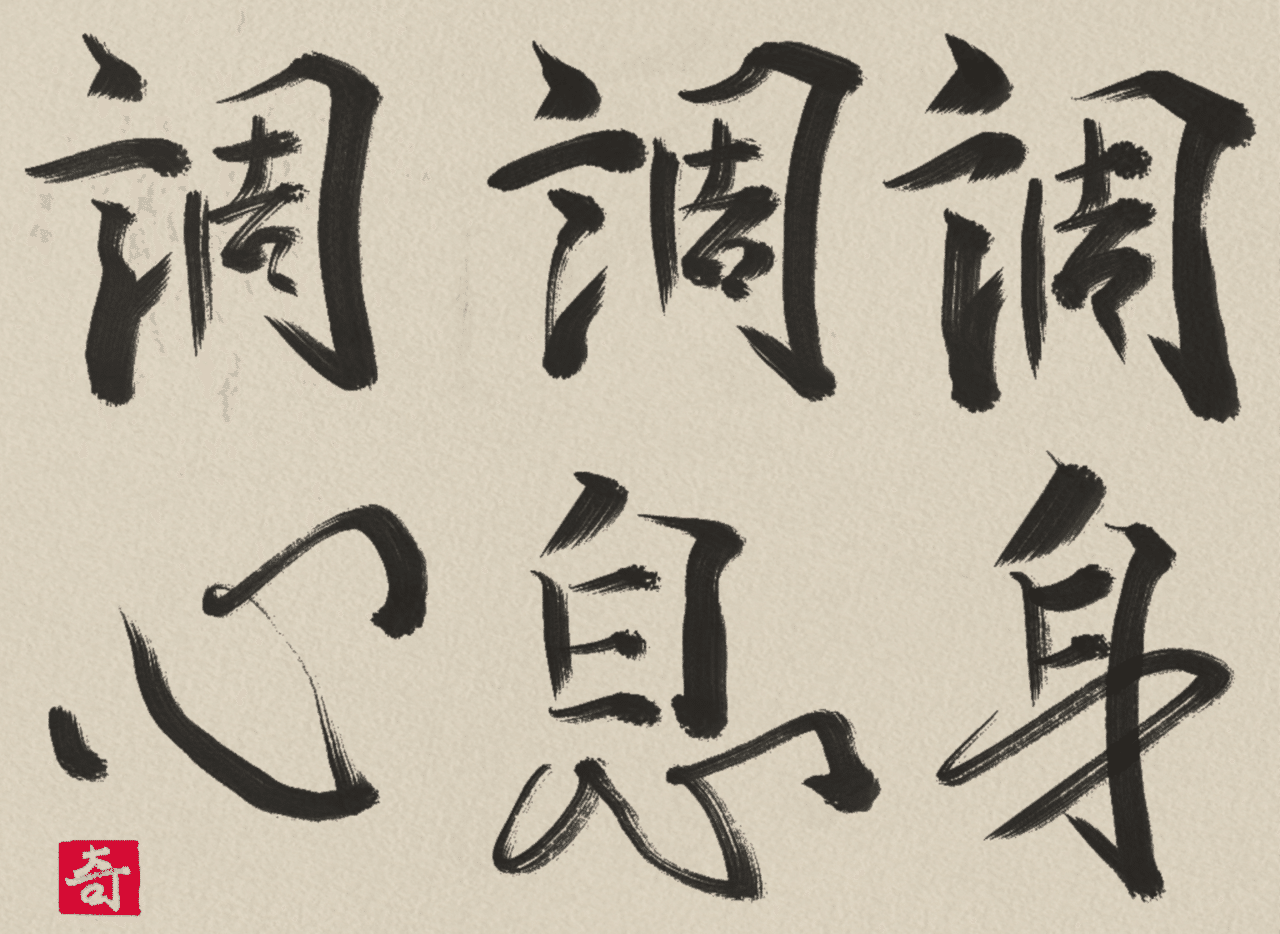 調身
調息
調心
奇